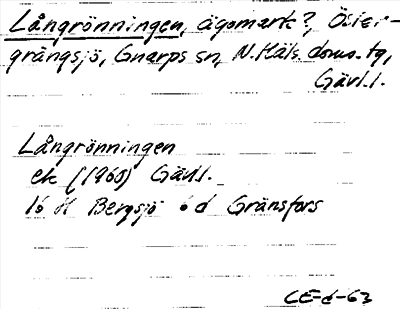 Långrönningen, ägomark?, Öster-
grängsjö, Gnarps sn, N. Häls. doms. tg,
Gävl. l.
Långrönningen
ek (1960) Gävl.
16 H Bergsjö 6 d Gränsfors
CE-d-63